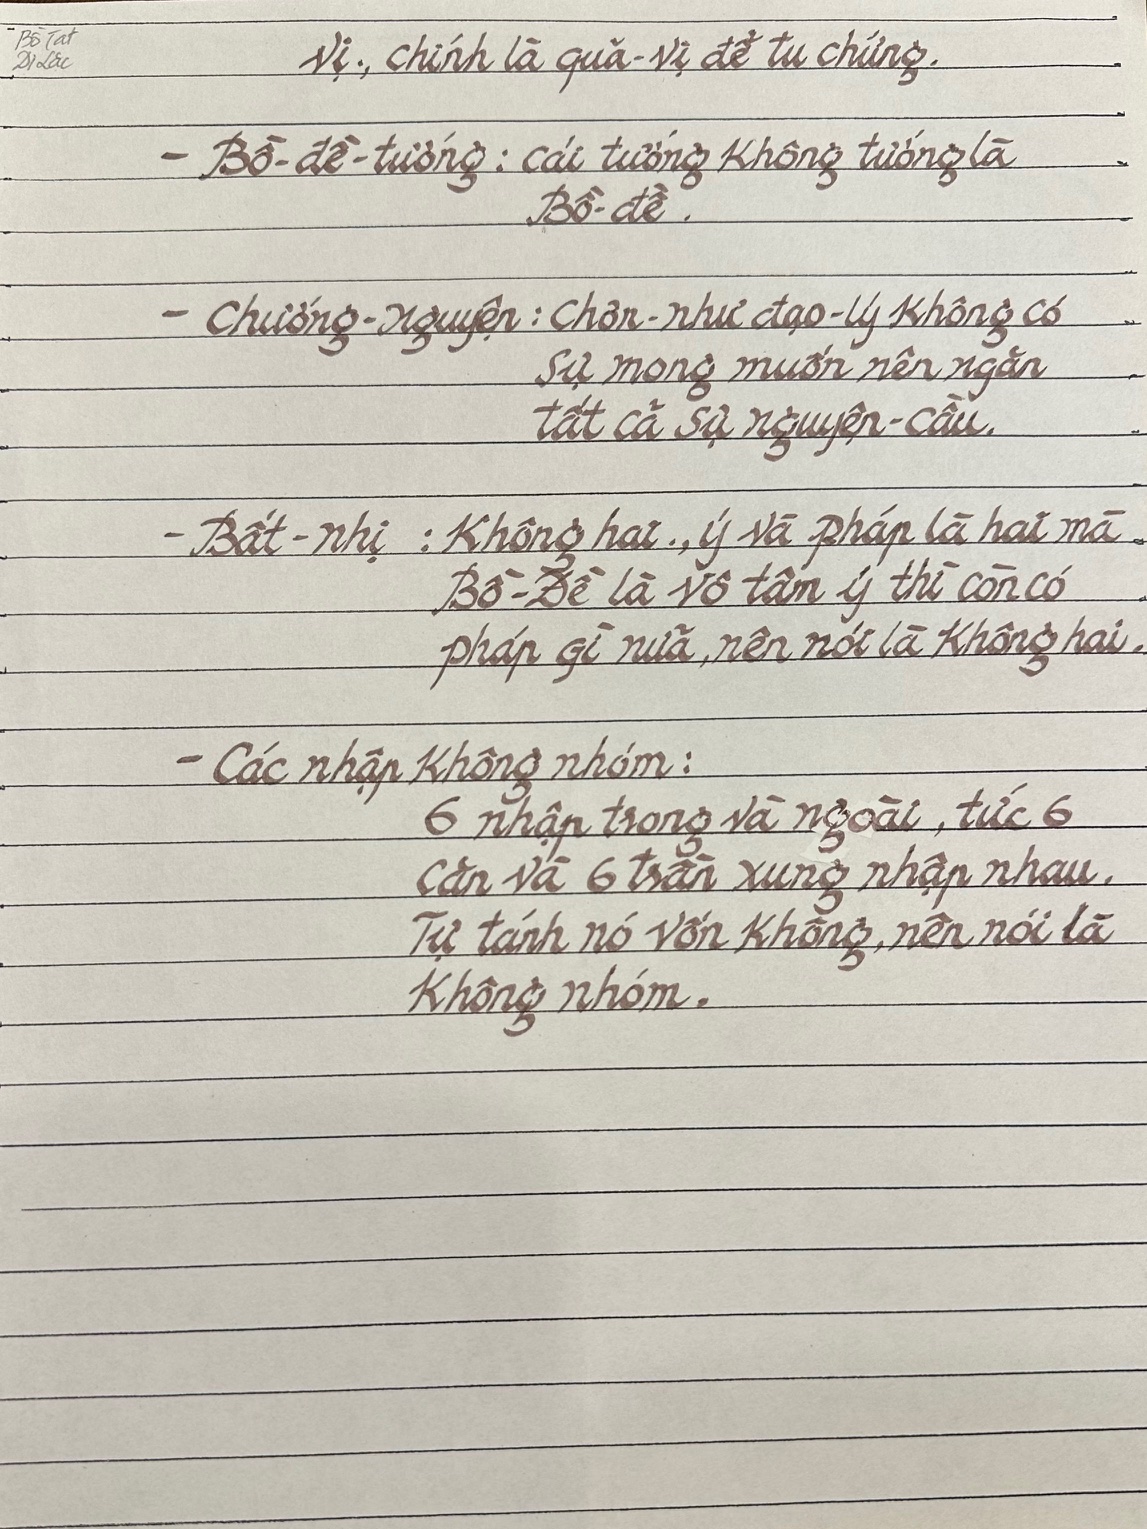 Bồ Tát
Di Lặc
Vị., chính là quả-vị để tu chứng.
- Bồ-đề-tướng: cái tướng không tướng là
Bồ-đề.
- Chướng-nguyện: Chơn-như đạo-lý không có
sự mong muốn nên ngăn
tất cả sự nguyện-cầu.
- Bất-nhị : Không hai., ý và pháp là hai mà
Bồ-Đề là vô tâm ý thì còn có
pháp gì nữa, nên nói là không hai.
- Các nhập không nhóm:
6 nhập trong và ngoài, tức 6
căn và 6 trần xung nhập nhau.
Tự tánh nó vốn không, nên nói là
không nhóm.